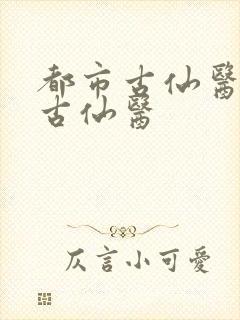 都市古仙醫
古仙醫
仄言小可愛